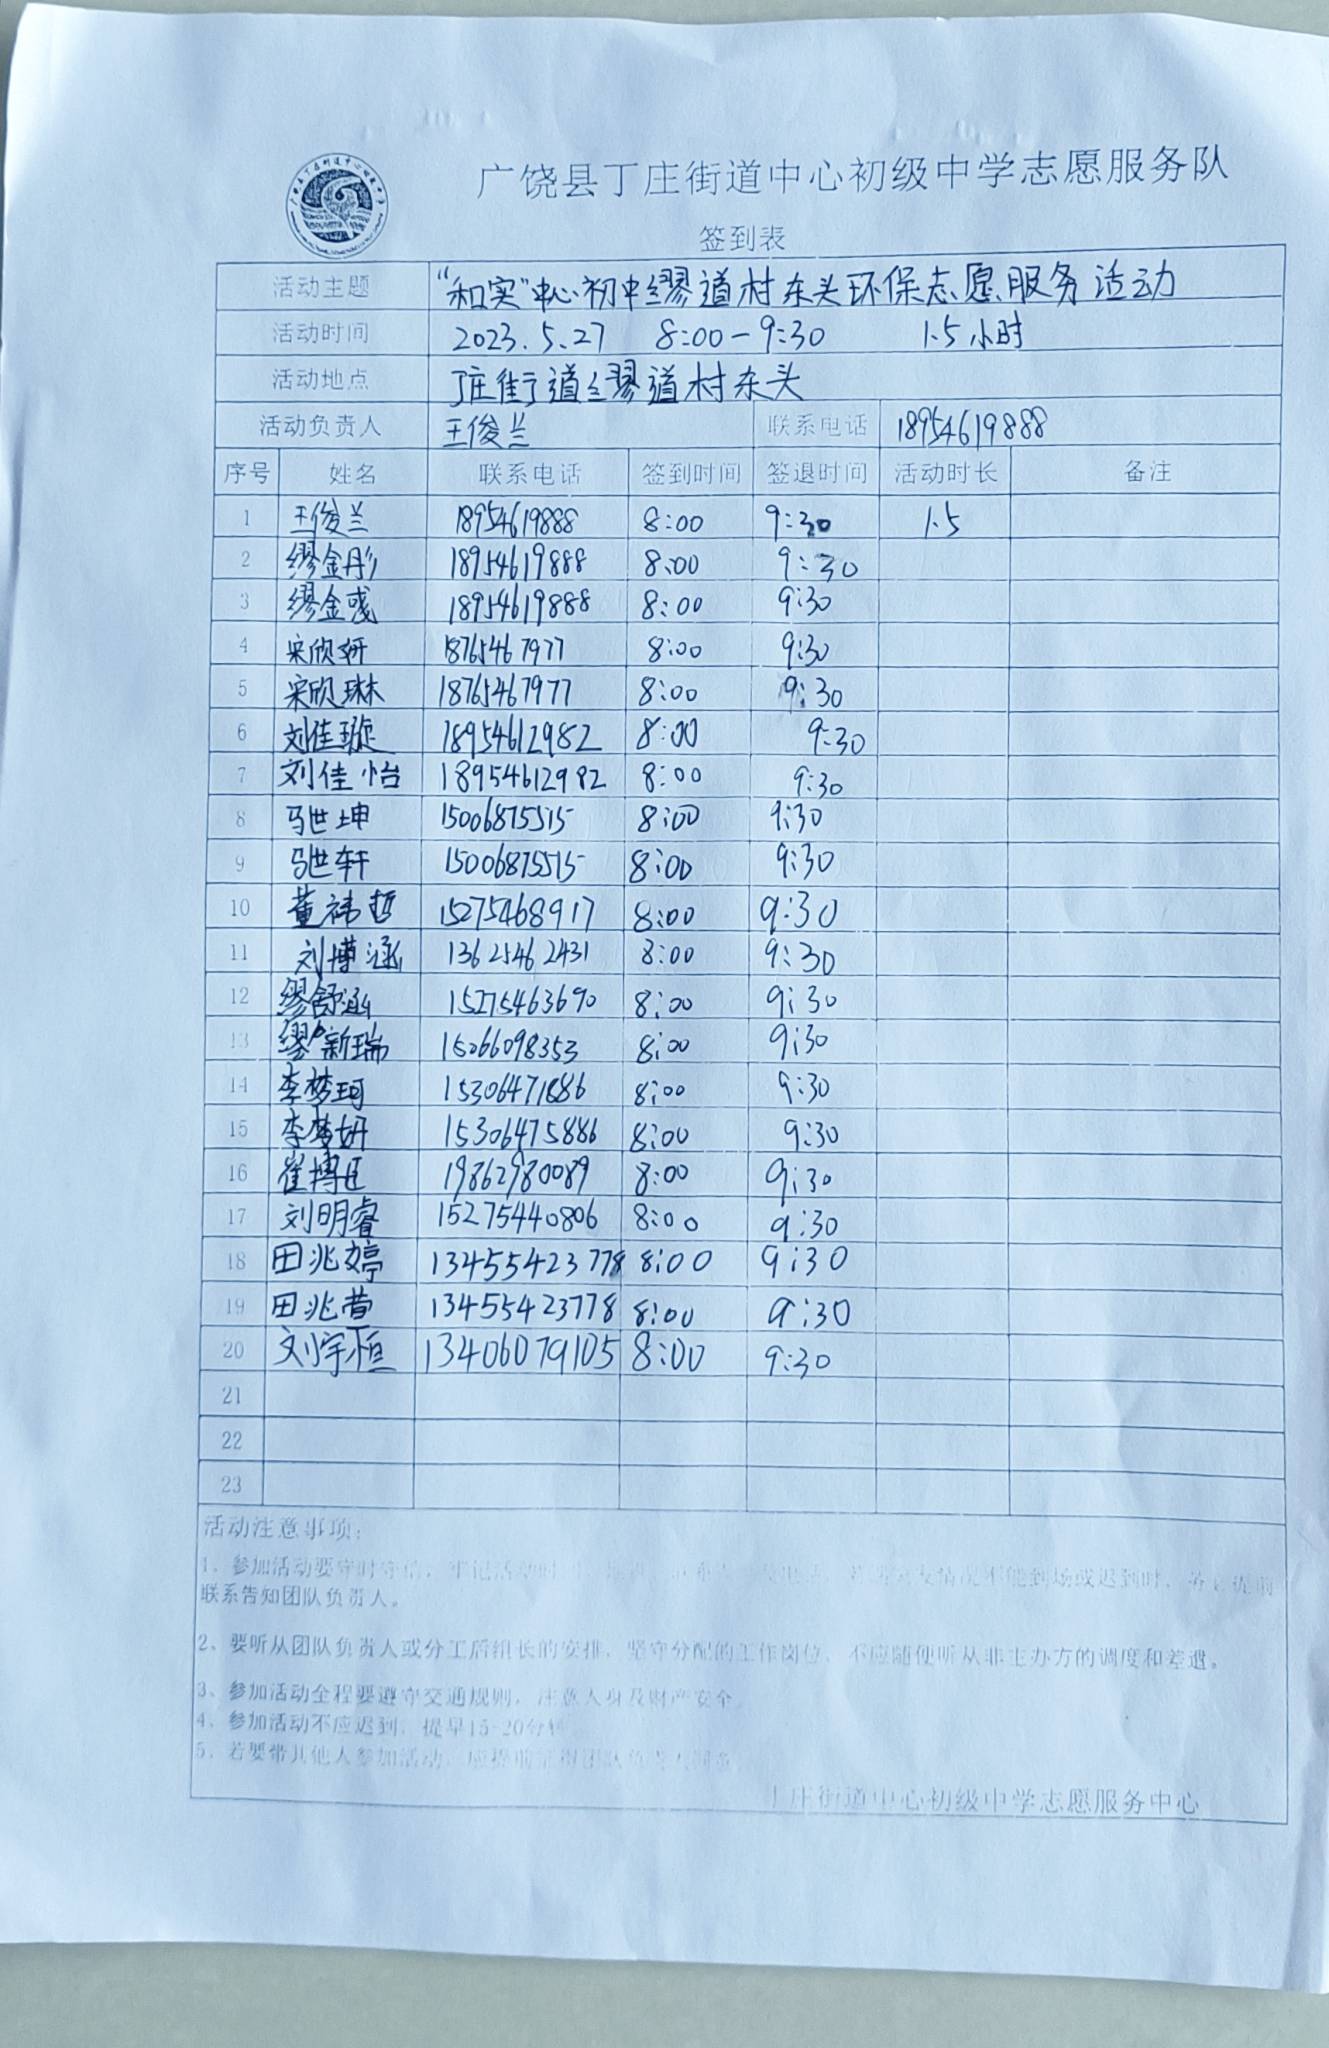 广饶县丁庄街道中心初级中学志愿服务队
签到表
活动主题 “和实”中心初中缪道村东头环保志愿服务活动
活动时间 2023.5.27 8:00-9:30 1.5小时
活动地点 丁庄街道缪道村东头
活动负责人 王俊兰 联系电话 18954619888
序号 姓名 联系电话 签到时间 签退时间 活动时长 备注
1 王俊兰 18954619888 8:00 9:30 1.5
2 缪金彤 18954619888 8:00 9:30
3 缪金彧 18954619888 8:00 9:30
4 宋欣妍 18765467977 8:00 9:30
5 宋欣琳 18765467977 8:00 9:30
6 刘佳璇 18954612982 8:00 9:30
7 刘佳怡 18954612982 8:00 9:30
8 马世坤 15006875515 8:00 9:30
9 马世轩 15006875515 8:00 9:30
10 董祎哲 15275468917 8:00 9:30
11 刘博涵 13625462431 8:00 9:30
12 缪舒涵 15275463690 8:00 9:30
13 缪新瑞 15066098353 8:00 9:30
14 李梦珂 15306471886 8:00 9:30
15 李梦妍 15306475886 8:00 9:30
16 崔博臣 19862980089 8:00 9:30
17 刘明睿 15275440806 8:00 9:30
18 田兆婷 13455423778 8:00 9:30
19 田兆萱 13455423778 8:00 9:30
20 刘宇恒 13406079105 8:00 9:30
21
22
23
活动注意事项:
1、参加活动要守时守信,牢记活动时 情况不能到场或迟到时,
联系告知团队负责人。
2、要听从团队负责人或分工后组长的安排,坚守分配的工作岗位,不应随便听从非主办方的调度和差遣。
3、参加活动全程要遵守交通规则,注意人身及财产安全
4、参加活动不应迟到,提早15-20分钟
5、若要带其他人参加活动,应提前征得团队负责人同意
丁庄街道中心初级中学志愿服务中心